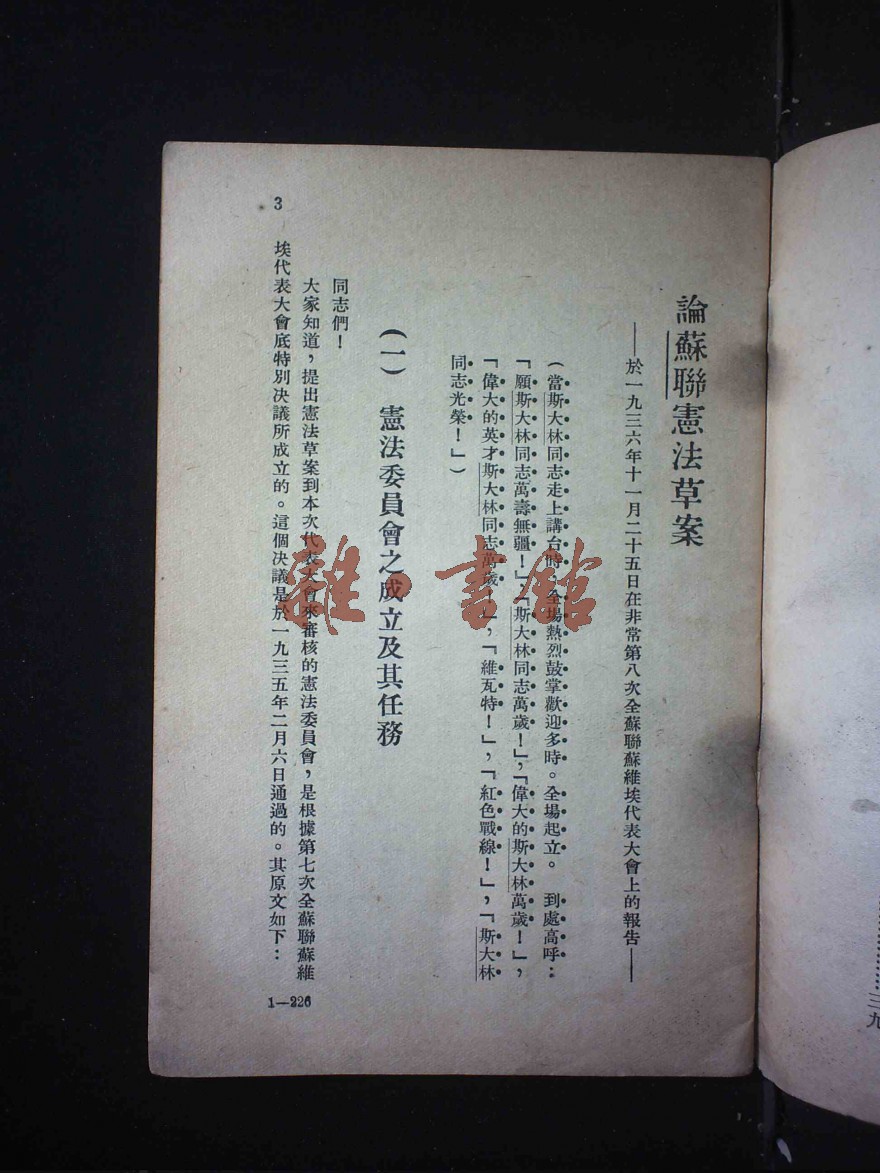 論蘇聯憲法草案
——於一九三六年十一月二十五日在非常第八次全蘇聯蘇維埃代表大會上的報告——
(當斯大林同志走上講台時，全場熱烈鼓掌歡迎多時。全場起立。 到處高呼：
「願斯大林同志萬壽無疆！」，「斯大林同志萬歲！」，「偉大的斯大林萬歲！」，
「偉大的英才斯大林同志萬歲！」，「維瓦特！」，「紅色戰線！」，「斯大林
同志光榮！」)
(一) 憲法委員會之成立及其任務
同志們！
大家知道，提出憲法草案到本次代表大會來審核的憲法委員會，是根據第七次全蘇聯蘇維
埃代表大會底特別決議所成立的。這個決議是於一九三五年二月六日通過的。其原文如下：
3
1—226
雜·書館
三九